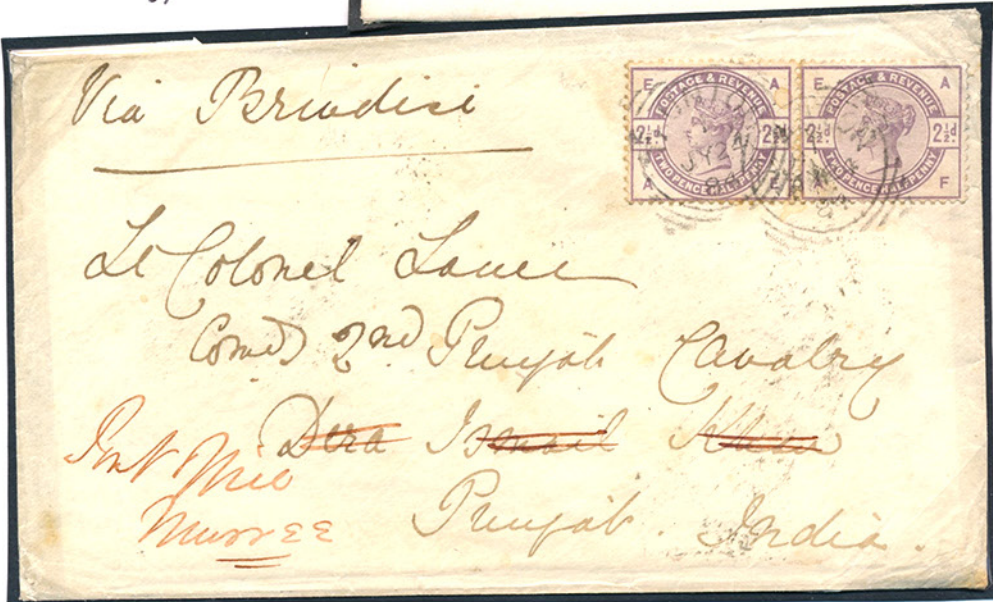 Via Brindisi
E POSTAGE & REVENUE A
2½d. 2½d.
TWO PENCE HALFPENNY
A
E POSTAGE & REVENUE A
2½d. 2½d.
TWO PENCE HALFPENNY
F
JY 24
Lt Colonel Lance
Comdg 2nd Punjab Cavalry
Dera Ismail Khan
Murree
Punjab. India.